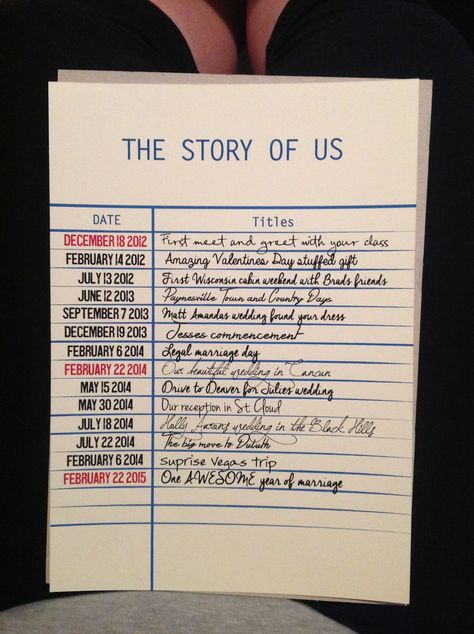 THE STORY OF US
DATE Titles
DECEMBER 18 2012 First meet and greet with your class
FEBRUARY 14 2012 Amazing Valentines Day stuffed gift
JULY 13 2012 First Wisconsin cabin weekend with Brads friends
JUNE 12 2013 Paynesville Town and Country Days
SEPTEMBER 7 2013 Matt Amandas wedding found your dress
DECEMBER 19 2013 Jesses commencement
FEBRUARY 6 2014 Legal marriage day
FEBRUARY 22 2014 Our beautiful wedding in Cancun
MAY 15 2014 Drive to Denver for Julies wedding
MAY 30 2014 Our reception in St Cloud
JULY 18 2014 Holly Aarons wedding in the Black Hills
JULY 22 2014 The big move to Duluth
FEBRUARY 6 2014 suprise Vegas trip
FEBRUARY 22 2015 One AWESOME year of marriage